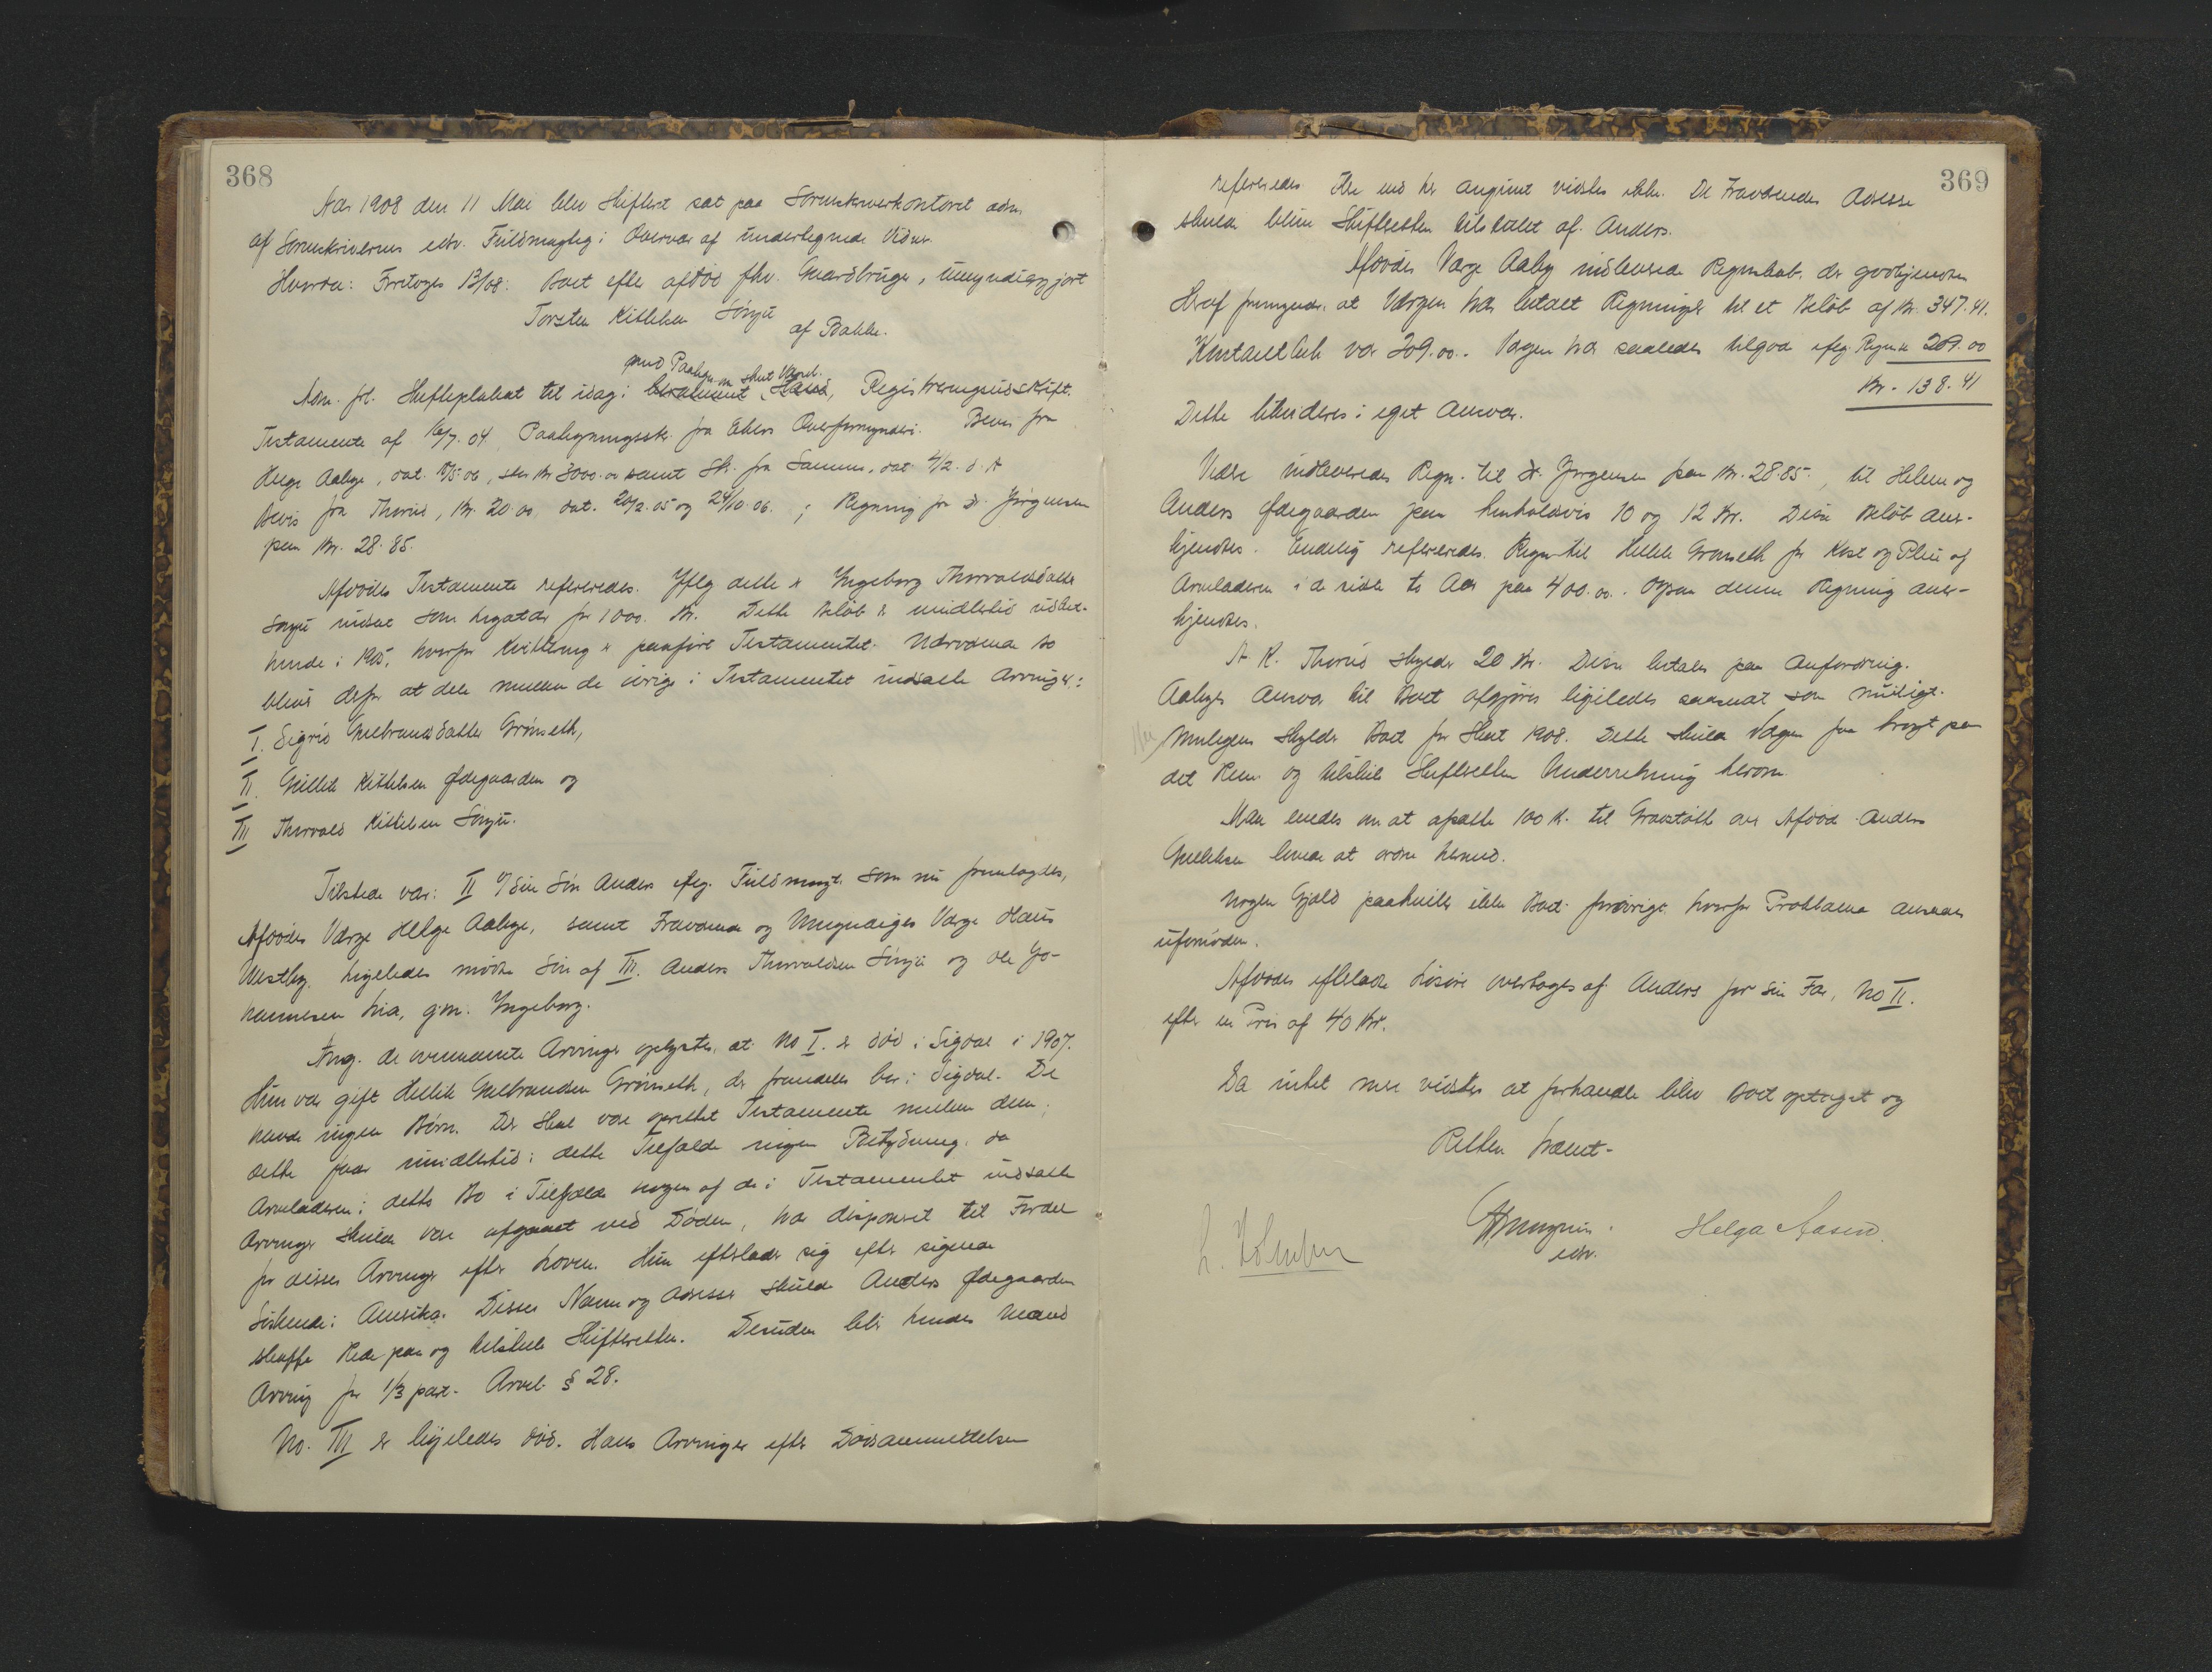 368
Aar 1908 den 11 Mai blev Skifteret sat paa Sorenskriverkontoret adm.
af Sorenskriverens edsv. Fuldmægtig i Overvær af undertegnede Vidner.
Hvorda: Foretoges 13/08: Boet efter afdøde fhv. Gaardbruger, umyndiggjort
Torsten Kittelsen Sønju
af Bakke.
med Paategn. om skeet Varsel.
Adm. frl. Skifteplakat til idag; Registreringsudskrift.
Testamente af /7. 04, Paategningssk. fra Ekers Overformynderi. Bevis fra
Helge Aabye, dat. /5 06, stor Kr 3000.00 samt Sk. fra Samme, dat. 4/2. d. A
Bevis fra Thorud, Kr. 20.00, dat. 20/2. 05 og 24/10. 06. ; Regning fra Dr. Jørgensen
paa Kr. 28.85.
Afdødes Testamente refereredes. Iflg dette er Ingeborg Thorvaldsdatter
Sønju indsat som Legatar for 1000. Kr. Dette Beløb er imidlertid udbet.
hende i 1905, hvorfor Kvittering er paaført Testamentet. Nærværende Bo
bliver derfor at dele mellem de øvrige i Testamentet indsatte Arvinger:
I. Sigrid Gulbrandsdatter Grønseth,
II. Gullik Kittelsen Ødegaarden og
III Thorvald Kittelsen Sønju.
Tilstede var: II v/ sin Søn Anders iflg. Fuldmagt som nu fremlagdes,
Afdødes Værge Helge Aabye, samt Fraværende og Umyndiges Værge Hans
Westby. Ligeledes mødte Søn af III. Anders Thorvaldsen Sønju og Ole Jo-
hannesen Lia, g.m. Ingeborg.
Ang. de ovennævnte Arvinger oplystes, at No I. er død i Sigdal i 1907.
Hun var gift Hellik Gulbrandsen Grønseth, der fremdeles bor i Sigdal. De
havde ingen Børn. Der skal være oprettet Testamente mellem dem;
dette faar imidlertid i dette Tilfælde ingen Betydning, da
Arveladeren i dette Bo i Tilfælde nogen af de i Testamentet indsatte
Arvinger skulde være afgaaet ved Døden, har disponeret til Fordel
for disses Arvinger efter Loven. Hun efterlader sig efter sigende
Søskende i Amerika. Disses Navne og Adresser skulde Anders Ødegaarden
skaffe Rede paa og tilstille Skifteretten. Desuden blir hendes Mand
Arving for 1/3 part. Arvel. § 28.
No. III er ligeledes død. Hans Arvinger efter Dødsanmeldelsen
369
refereredes. Mere end her angivet vidstes ikke. De Fraværendes Adresse
skulde blive Skifteretten tilstillet af Anders.
Afdødes Værge Aaby indleverede Regnskab, der godkjendtes
Heraf fremgaar, at Værgen har betalt Regninger til et Beløb af Kr. 347.41.
Kontantbeh. var 209.00. Værgen har saaledes tilgode iflg. Regnsk 209.00
Kr. 138.41
Dette likvideres i eget Ansvar.
Videre indleveredes Regn. til Dr. Jørgensen paa Kr. 28.85, til Helene og
Anders Ødegaarden paa henholdsvis 10 og 12 Kr. Disse Beløb aner-
kjendtes. Endelig refereredes Regn. til Hellik Grønseth for Kost og Pleie af
Arveladeren i de sidste to Aar paa 400.00. Ogsaa denne Regning aner-
kjendtes.
A. K. Thorud skylder 20 Kr. Disse betales paa Anfordring.
Aabyes Ansvar til Boet afgjøres ligeledes saasnart som muligt.
Muligens skylder Boet for Skat 1908. Dette skulde Værgen faa bragt paa
det Rene og tilstille Skifteretten Underretning herom.
Man enedes om at afsætte 100 K. til Gravstøtte over Afdøde. Anders
Gulliksen lovede at ordne hermed.
Nogen Gjæld paahviler ikke Boet forøvrigt, hvorfor Proklama ansaaes
ufornøden.
Afdødes efterladte Løsøre overtoges af Anders for sin Far, No II.
efter en Pris af 40 Kr.
Da intet mere vidstes at forhandle blev Boet optaget og
Retten hævet.
edsv.
Helga Aasen.